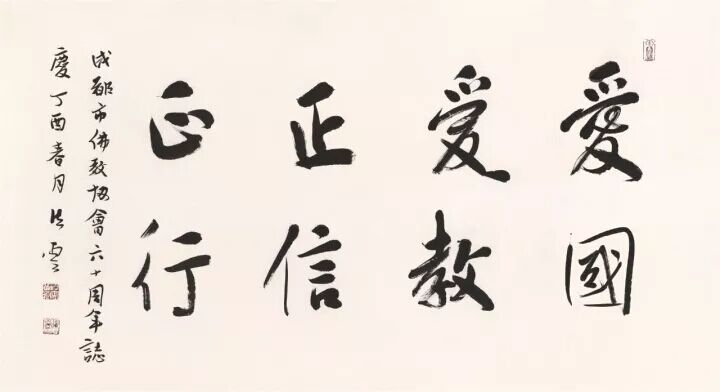 愛國
愛教
正信
正行
成都市佛教協會六十周年誌
慶丁酉春月